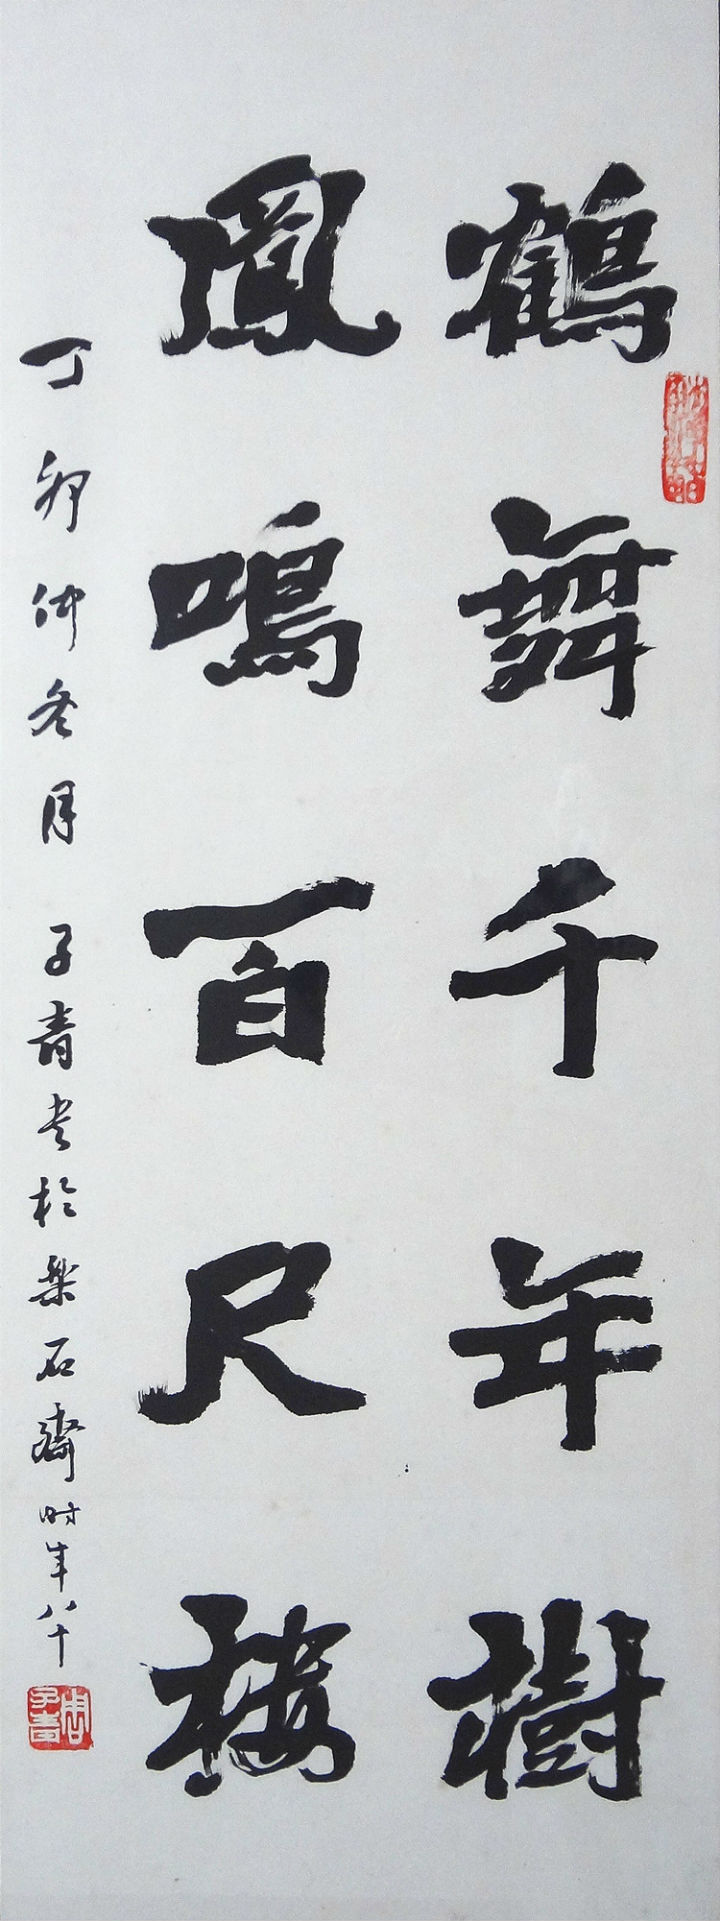 鶴舞千年樹
鳳鳴百尺樓
丁卯仲冬月 子青书於樂石齋时年八十
周子青